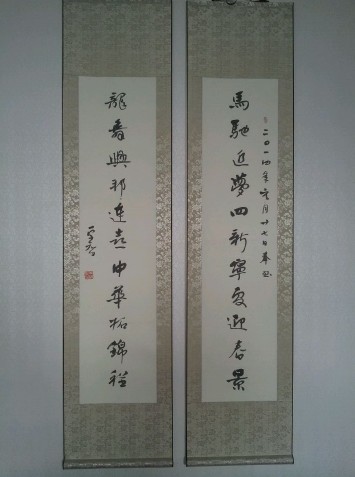 馬馳近夢四新寧夏迎春景
二〇一四年元月廿七日
龍舞興邦連喜中華拓錦程